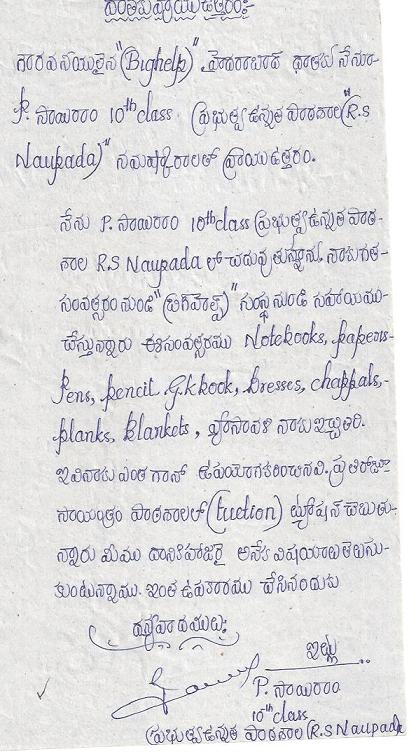 దాతకువ్రాయుఉత్తరం:-
గౌరవనీయులైన "(Bighelp)" హైదరాబాద్ దాతకు నేను-
P. సాయిరాం 10th class. ప్రభుత్వ ఉన్నత పాఠశాల "(R.S
Naupada)" నమష్కారాలతో వ్రాయు ఉత్తరం.
నేను P. సాయిరాం 10th class ప్రభుత్వ ఉన్నత పాఠ-
శాల R.S Naupada లో చదువుతున్నాను. నాకు గత-
సంవత్సరం నుండి "(బిగ్‌హెల్ప్)" సంస్థ నుండి సహాయము-
చేస్తున్నారు ఈ సంవత్సరము Notebooks, papers-
Pens, pencil G.k book, Dresses, chappals,-
planks, blankets, వ్యాసావళి నాకు ఇచ్చితిరి.
ఇవి నాకు ఎంతగానో ఉపయోగకరించినవి. ప్రతిరోజూ
సాయింత్రం పాఠశాలలో (tuction) ట్యూషన్ చెబుతు-
న్నారు మేము దానికి హాజరై అనేక విషయాలు తెలుసు-
కుంటున్నాము. ఇంత ఉపకారము చేసినందుకు
ధన్యవాదములు:
ఇట్లు
P. సాయిరాం
10th class
ప్రభుత్వ ఉన్నత పాఠశాల (R.S Naupada